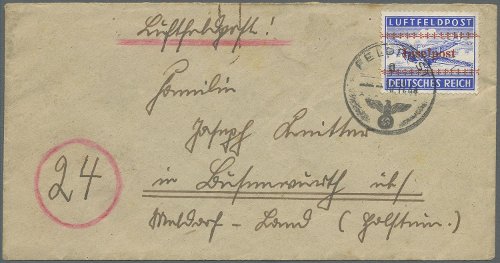 Luftfeldpost!
LUFTFELDPOST
Inselpost
DEUTSCHES REICH
FELDPOST
Familie
Joseph Knitter
in Büsumwürth üb/
Meldorf - Land (Holstein.)
24